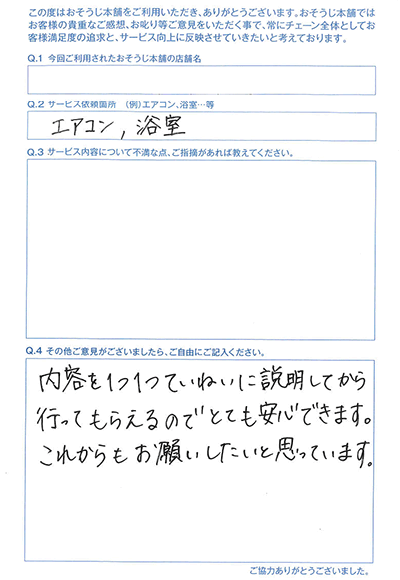 この度はおそうじ本舗をご利用いただき、ありがとうございます。おそうじ本舗では
お客様の貴重なご感想、お叱り等ご意見をいただく事で、常にチェーン全体としてお
客様満足度の追求と、サービス向上に反映させていきたいと考えております。
Q.1 今回ご利用されたおそうじ本舗の店舗名
Q.2 サービス依頼箇所 (例)エアコン、浴室…等
エアコン, 浴室
Q.3 サービス内容について不満な点、ご指摘があれば教えてください。
Q.4 その他ご意見がございましたら、ご自由にご記入ください。
内容を1つ1つていねいに説明してから
行ってもらえるのでとても安心できます。
これからもお願いしたいと思っています。
ご協力ありがとうございました。